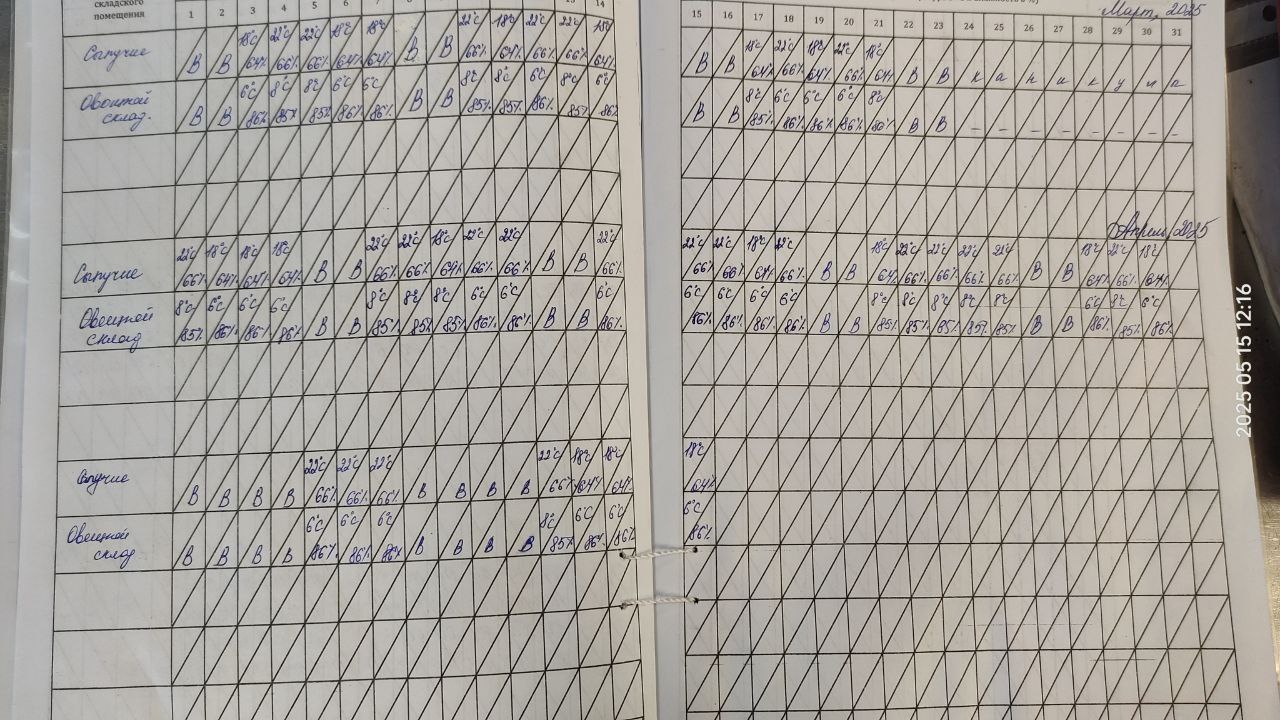 складского
помещения 1 2 3 4 5 6 7 8 9 10 11 12 13 14 15 16 17 18 19 20 21 22 23 24 25 26 27 28 29 30 31
Март, 2025
Сыпучие
В В 18°С 64% 22°С 66% 22°С 66% 18°С 64% 18°С 64% В В 22°С 66% 18°С 64% 22°С 66% 22°С 66% 18°С 64% В В 18°С 64% 22°С 66% 18°С 64% 22°С 66% 18°С 64% В В к а н и к у л а
Овощной
склад.
В В 6°С 86% 8°С 85% 8°С 85% 6°С 86% 6°С 86% В В 8°С 85% 8°С 85% 6°С 86% 8°С 85% 6°С 86% В В 8°С 85% 6°С 86% 6°С 86% 6°С 86% 8°С В В – – – – – – – –
Апрель, 2025
Сыпучие
22°С 66% 18°С 64% 18°С 64% 18°С 64% В В 22°С 66% 22°С 66% 18°С 64% 22°С 66% 22°С 66% В В 22°С 66% 22°С 66% 22°С 66% 18°С 64% 22°С 66% В В 18°С 64% 22°С 66% 22°С 66% 22°С 66% 22°С 66% В В 18°С 64% 22°С 66% 18°С 64%
Овощной
склад
8°С 85% 6°С 86% 6°С 86% 6°С 86% В В 8°С 85% 8°С 85% 8°С 85% 6°С 86% 6°С 86% В В 6°С 86% 6°С 86% 6°С 86% 6°С 86% 6°С 86% В В 8°С 85% 8°С 85% 8°С 85% 8°С 85% 8°С 85% В В 6°С 86% 8°С 85% 6°С 86%
Сыпучие
В В В В 22°С 66% 22°С 66% 22°С 66% В В В В 22°С 66% 18°С 64% 18°С 64% 18°С 64%
Овощной
склад
В В В В 6°С 86% 6°С 86% 6°С 86% В В В В 8°С 85% 6°С 86% 6°С 86% 6°С 86%
2025 05 15 12:16